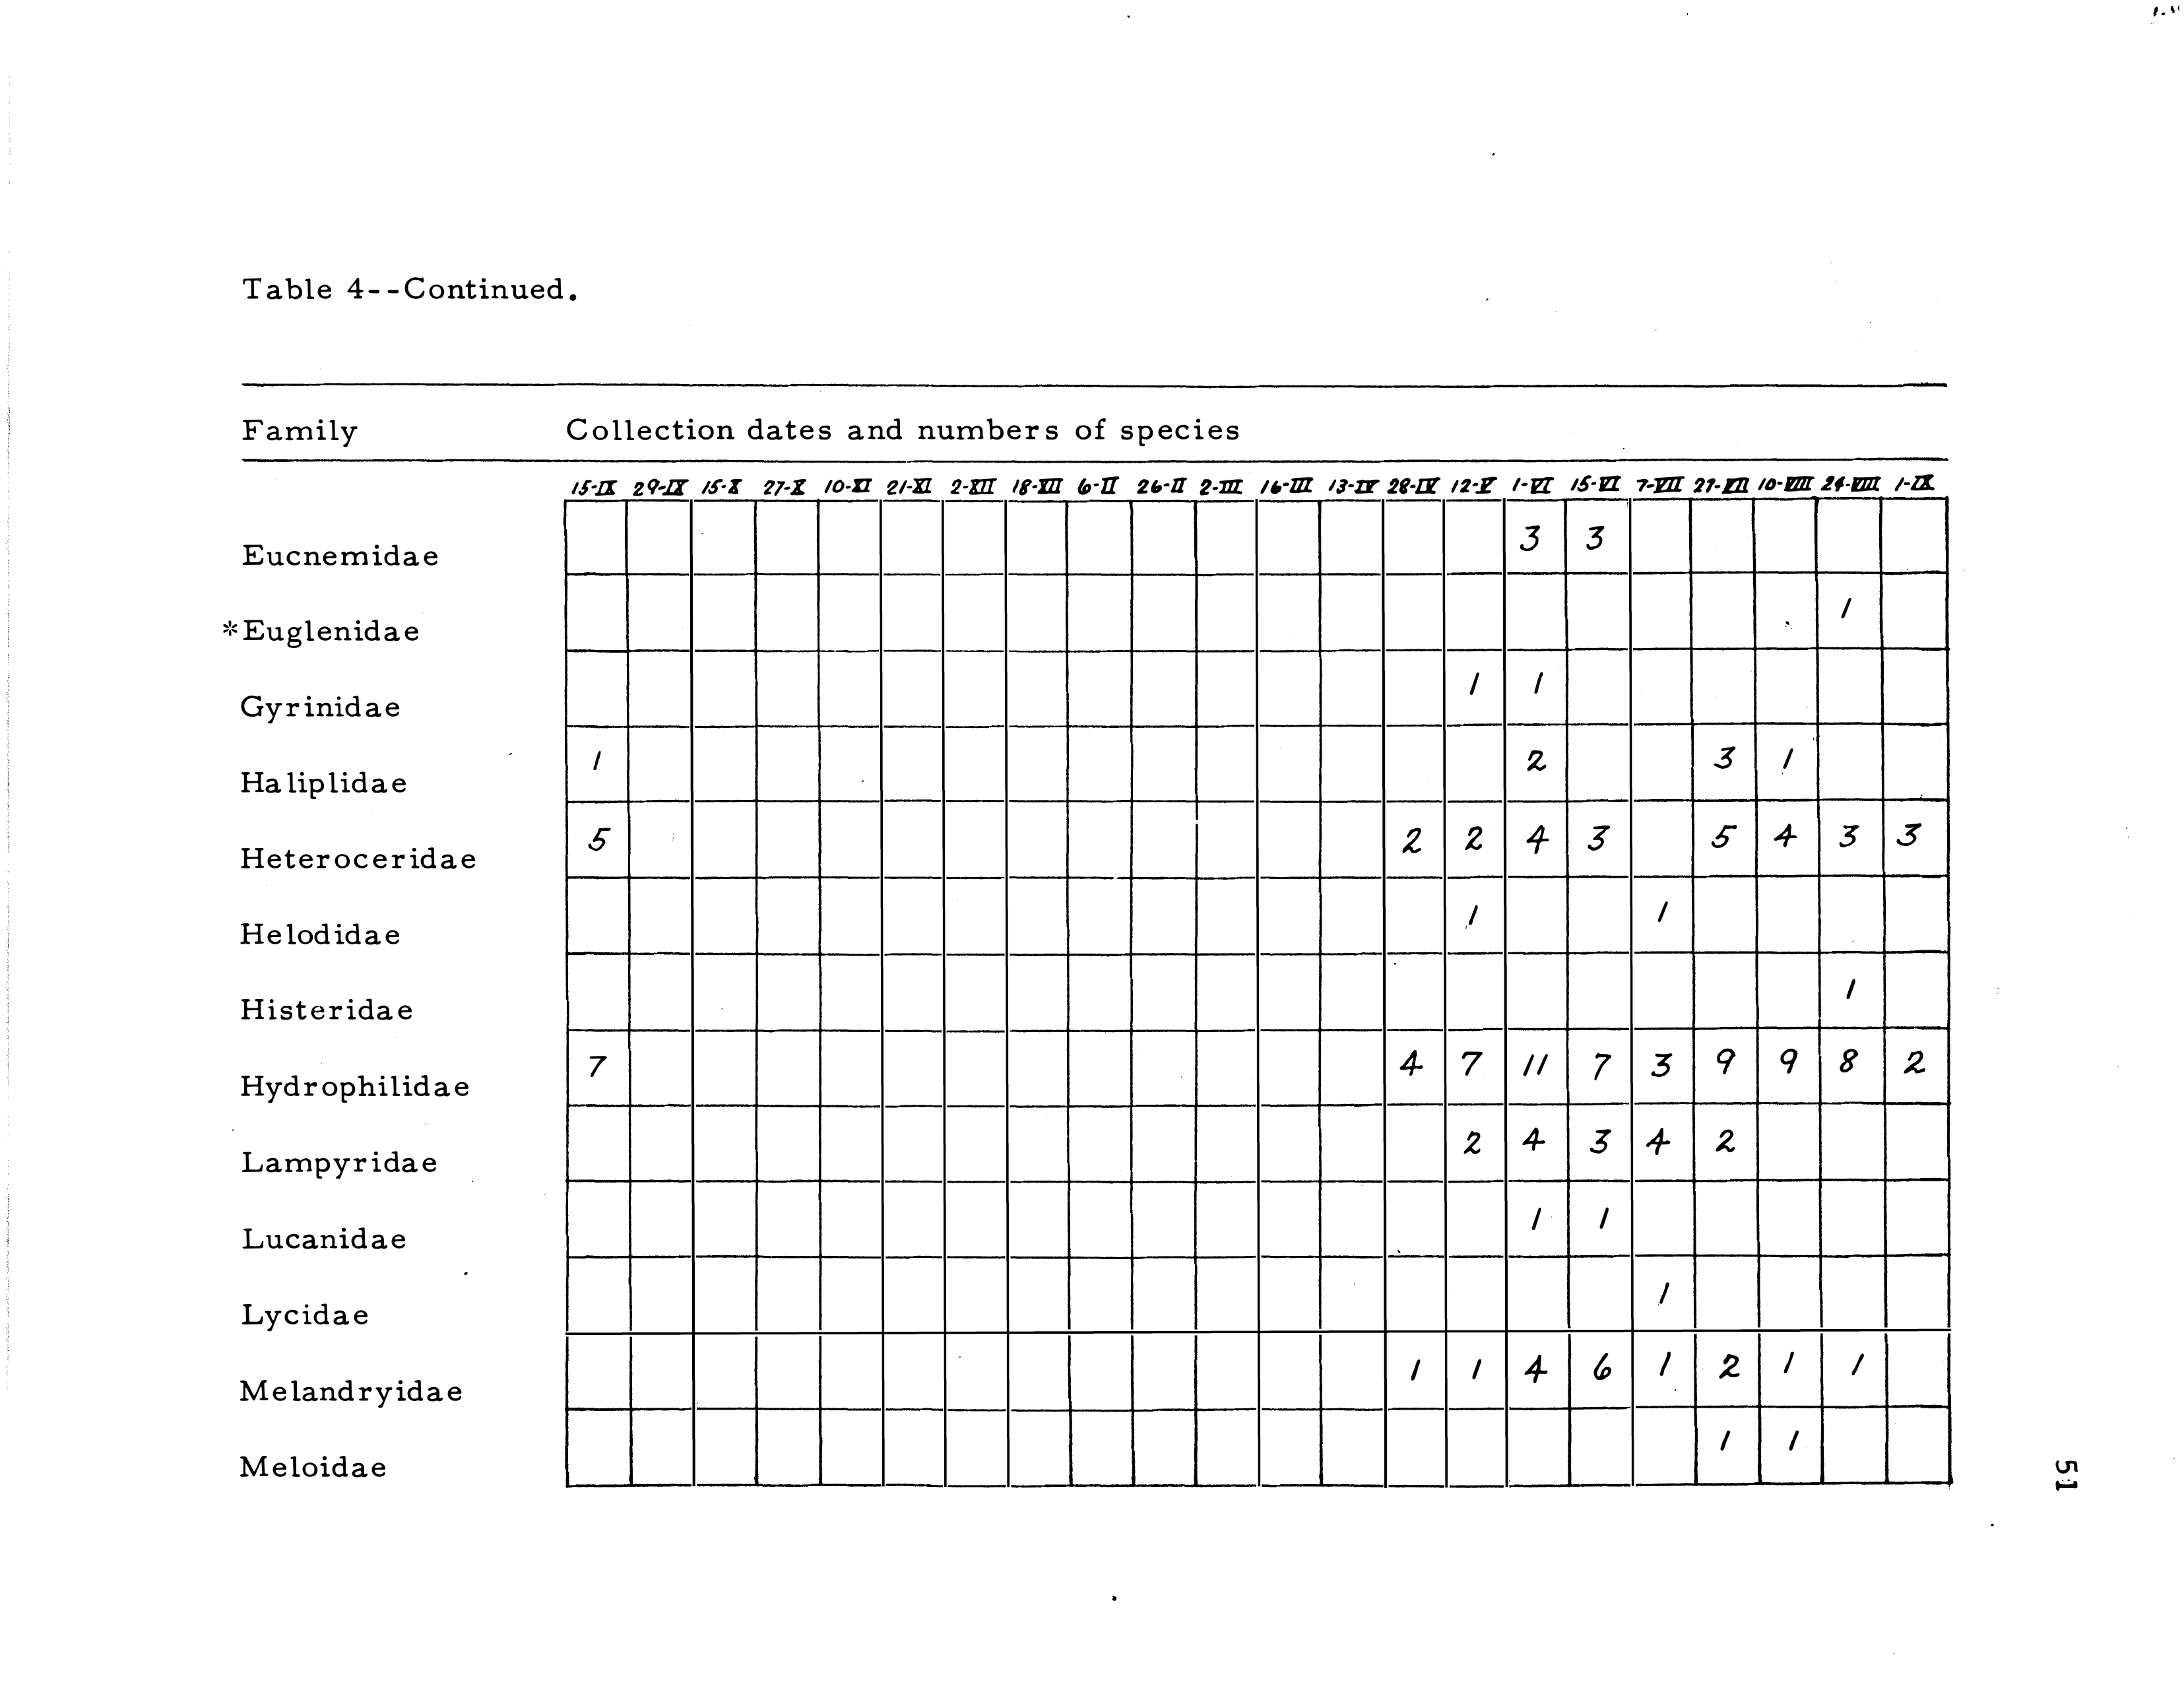 Table 4--Continued.
Family Collection dates and numbers of species
15-IX 29-IX 15-X 27-X 10-XI 21-XI 2-XII 18-XII 6-II 26-II 2-III 16-III 13-IV 28-IV 12-V 1-VI 15-VI 7-VII 27-VII 10-VIII 24-VIII 1-IX
Eucnemidae 3 3
*Euglenidae 1
Gyrinidae 1 1
Haliplidae 1 2 3 1
Heteroceridae 5 2 2 4 3 5 4 3 3
Helodidae 1 1
Histeridae 1
Hydrophilidae 7 4 7 11 7 3 9 9 8 2
Lampyridae 2 4 3 4 2
Lucanidae 1 1
Lycidae 1
Melandryidae 1 1 4 6 1 2 1 1
Meloidae 1 1
51